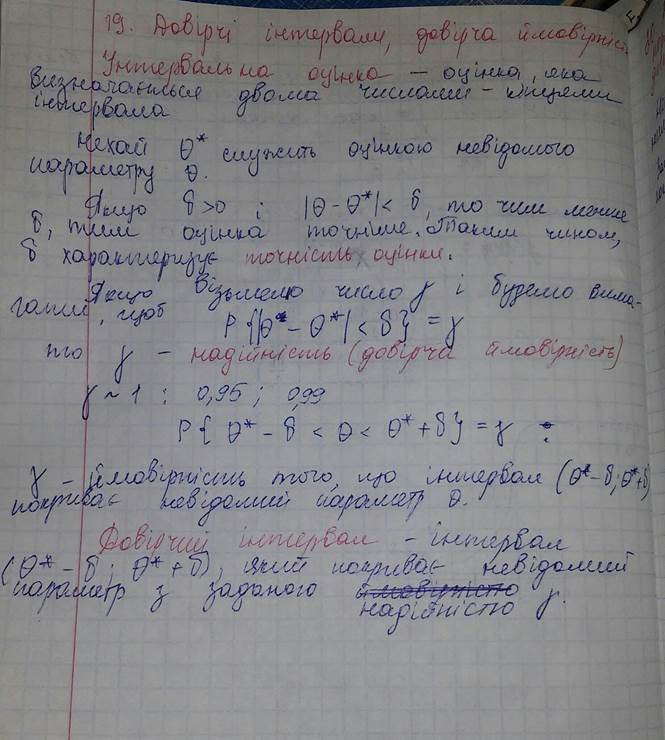 19. Довірчі інтервали, довірча ймовірність.
Інтервальна оцінка – оцінка, яка
визначається двома числами – кінцями
інтервала
Нехай θ* служить оцінкою невідомого
параметру θ.
Якщо δ>0 і |θ-θ*|<δ, то чим менше
δ, тим оцінка точніше. Таким чином,
δ характеризує точність оцінки.
Якщо візьмемо число γ і будемо вима-
гати, щоб
P{|θ-θ*|<δ}=γ
то γ – надійність (довірча ймовірність)
γ~1 : 0,95 ; 0,99
P{θ*-δ<θ<θ*+δ}=γ
γ – ймовірність того, що інтервал (θ*-δ;θ*+δ)
покриває невідомий параметр θ.
Довірчий інтервал – інтервал
(θ*-δ; θ*+δ), який покриває невідомий
параметр з заданою ймовірністю
надійністю γ.